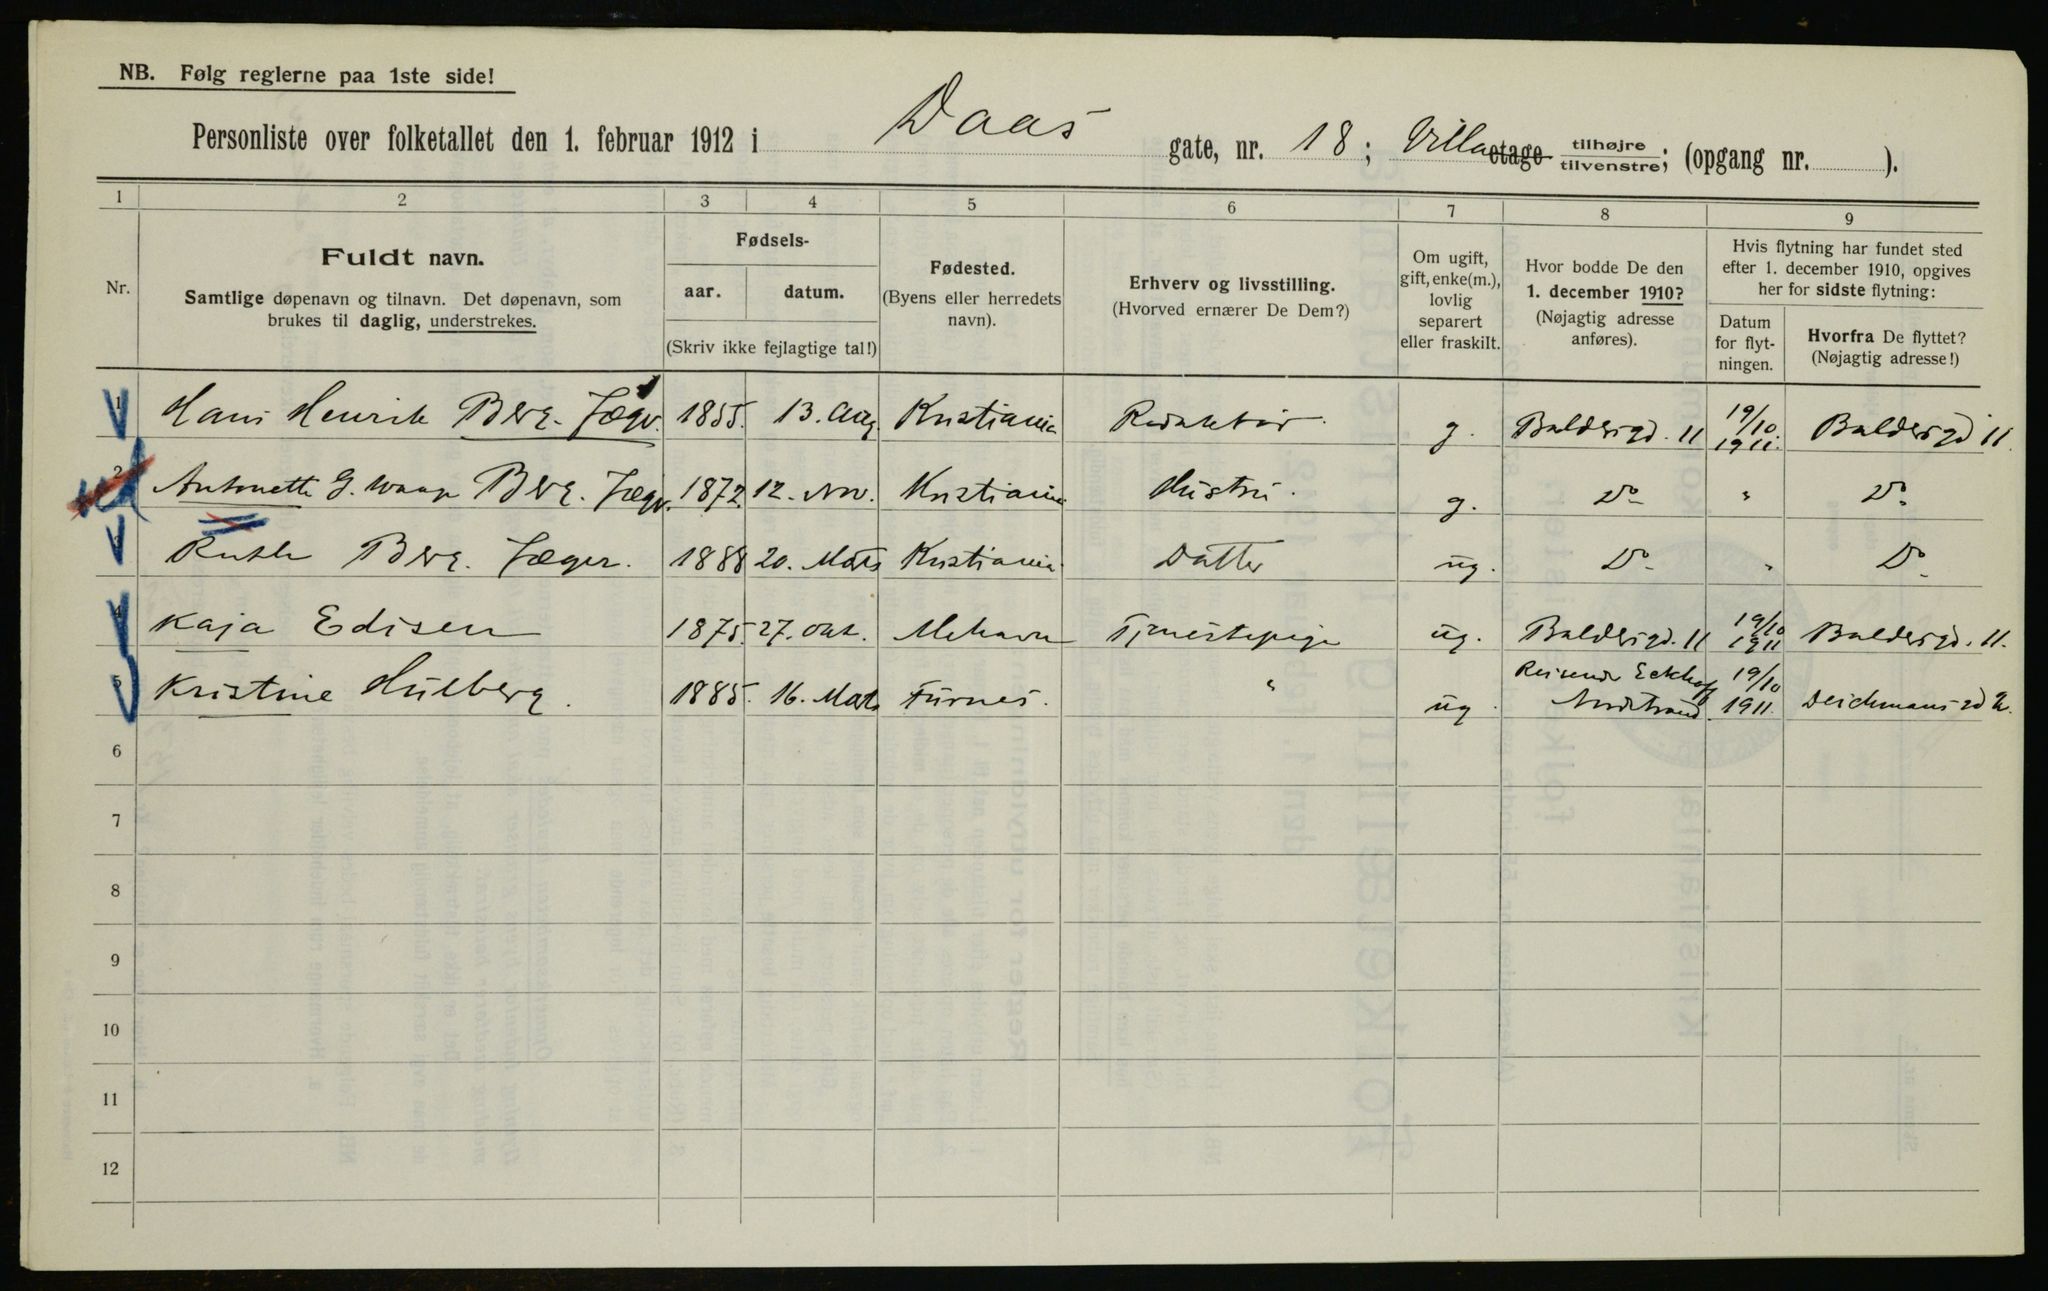 NB. Følg reglerne paa 1ste side!
Personliste over folketallet den 1. februar 1912 i Daas gate, nr. 18; Villa etage tilhøjre tilvenstre; (opgang nr. ).
1 2 3 4 5 6 7 8 9
Nr.
Fuldt navn.
Samtlige døpenavn og tilnavn. Det døpenavn, som
brukes til daglig, understrekes.
Fødsels-
aar. datum.
(Skriv ikke fejlagtige tal!)
Fødested.
(Byens eller herredets
navn).
Erhverv og livsstilling.
(Hvorved ernærer De Dem?)
Om ugift,
gift, enke(m.),
lovlig
separert
eller fraskilt.
Hvor bodde De den
1. december 1910?
(Nøjagtig adresse
anføres).
Hvis flytning har fundet sted
efter 1. december 1910, opgives
her for sidste flytning:
Datum
for flyt-
ningen.
Hvorfra De flyttet?
(Nøjagtig adresse!)
1 Hans Henrik Berg. Jæger. 1855. 13. Aug Kristiania Redaktør. g. Baldersgd. 11 19/10 1911. Baldersgd 11.
2 Antonette G. Berg. Jæger. 1872. 12. Nov. Kristiania Hustru. g. Do " Do
3 Ruth Berg. Jæger. 1888 20. Marts Kristiania. Datter ug. Do " Do
4 Kaja Edisen 1875. 27. Okt. Mehavn Tjenestepige ug. Baldersgd. 11 19/10 1911 Baldersgd. 11.
5 Kristine Hulberg. 1885. 16. Marts Furnes. " ug. Reisende Eckhoff Nordstrand. 19/10 1911. Deichmansgd 2.
6
7
8
9
10
11
12